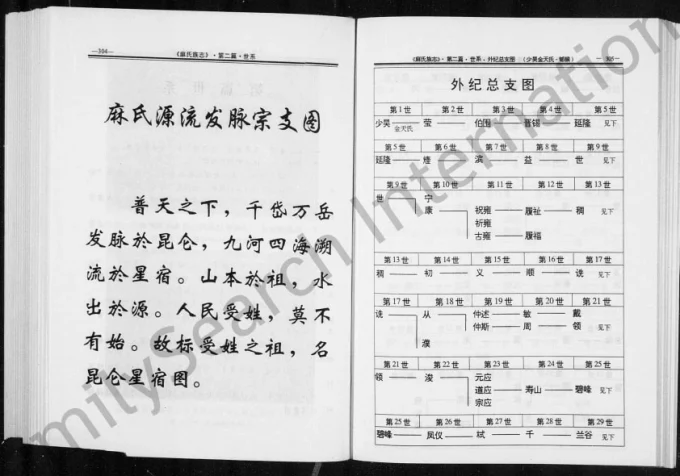 —304— 《麻氏族志》·第二篇·世系
麻氏源流发脉宗支图
普天之下，千岱万岳
发脉於昆仑，九河四海溯
流於星宿。山本於祖，水
出於源。人民受姓，莫不
有始。故标受姓之祖，名
昆仑星宿图。
《麻氏族志》·第二篇·世系·外纪总支图 （少昊金天氏·
—305—
外纪总支图
第1世 第2世 第3世 第4世 第5世
少昊金天氏 莹 伯国 晋锴 延隆 见下
第5世 第6世 第7世 第8世 第9世
延隆 滨 益 世 见下
第9世 第10世 第11世 第12世 第13世
世 宁
康 祝雍 履祉 稠 见下
祈雍
古雍 履福
第13世 第14世 第15世 第16世 第17世
稠 初 义 顺 诜 见下
第17世 第18世 第19世 第20世 第21世
诜 从 仲述 敏 戴
仲斯 周 领 见下
濮
第21世 第22世 第23世 第24世 第25世
领 浚 元应
道应 寿山 碧峰 见下
宗应
第25世 第26世 第27世 第28世 第29世
碧峰 凤仪 轼 千 兰谷 见下
milySearch International